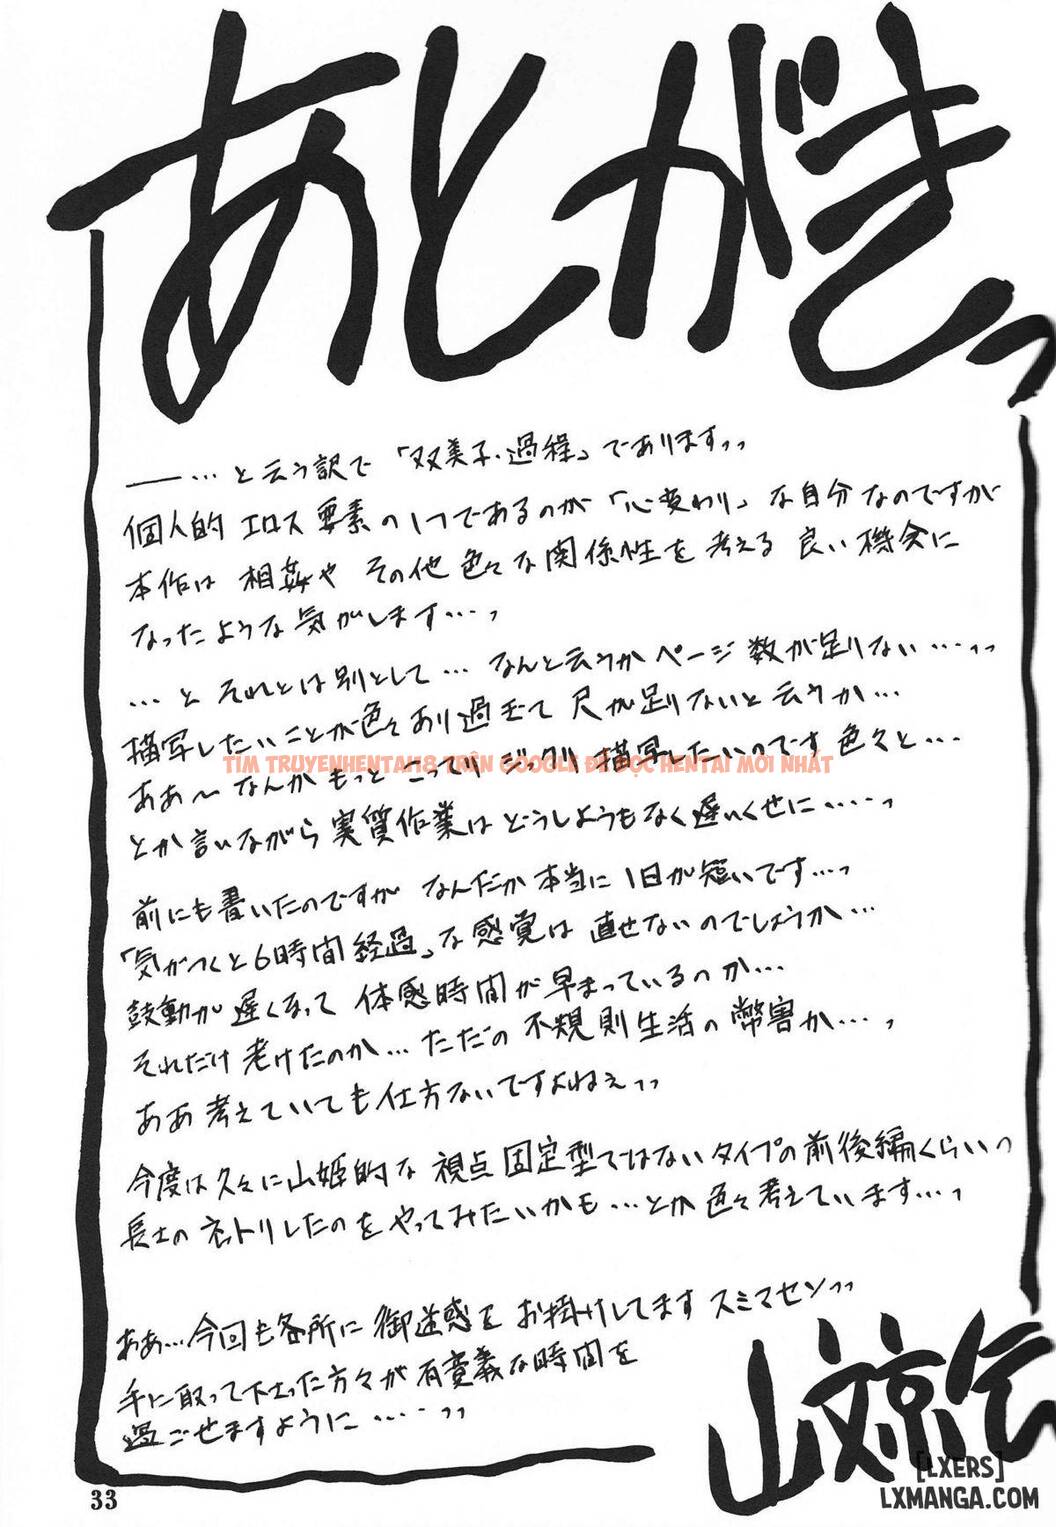 あとがきっ
——…と云う訳で「双美子・過程」でありますっっ
個人的エロス要素の1つであるのが「心変わり」な自分なのですが
本作は相姦やその他色々な関係性を考える良い機会に
なったような気がします…っ
…とそれとは別として…なんと云うかページ数が足りない…っっ
描写したいことが色々あり過ぎて尺が足りないと云うか…
TÌM TRUYENHENTAI18 TRÊN GOOGLE ĐỂ ĐỌC HENTAI MỚI NHẤT
ああ〜なんかもっとこってりジックリ描写したいのです色々と…
とか言いながら実質作業はどうしようもなく遅いくせに……っ
前にも書いたのですがなんだか本当に1日が短いです…っ
「気がつくと6時間経過」な感覚は直せないのでしょうか…
鼓動が遅くなって体感時間が早まっているのか…
それだけ老けたのか…ただの不規則生活の弊害か…っ
ああ考えていても仕方ないですよねぇっっ
今度は久々に山姫的な視点固定型ではないタイプの前後編くらいっ
長士の ネットリしたのをやってみたいかも…とか色々考えています…っ
ああ…今回も各所に御迷惑をお掛けしてますスミマセンっっ
手に取って下さった方々が有意義な時間を
過ごせますように……っっ
山文京伝
[LXERS]
LXMANGA.COM
33